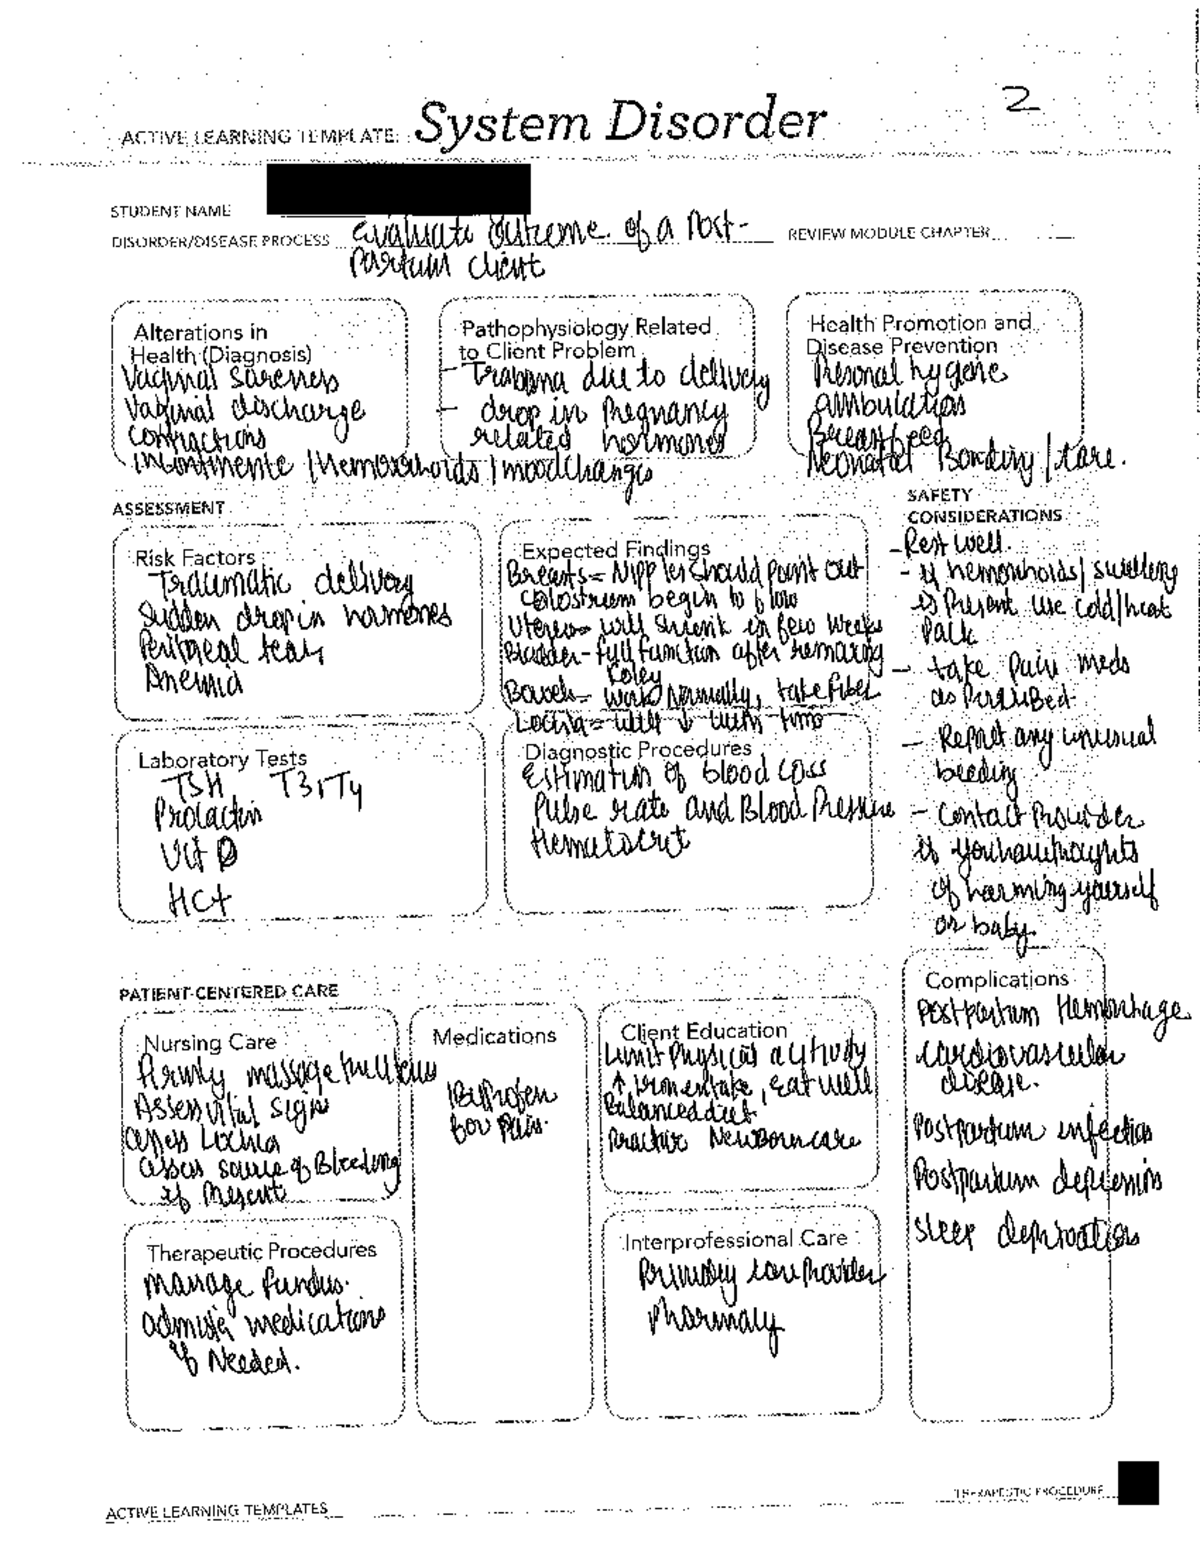 2
ACTIVE LEARNING TEMPLATE: System Disorder
STUDENT NAME
DISORDER/DISEASE PROCESS Evaluate outcome of a Post-
Partum Client
REVIEW MODULE CHAPTER
Alterations in
Health (Diagnosis)
Vaginal Soreness
Vaginal discharge
Contractions
Incontinente / Hemorrhoids / mood changes
Pathophysiology Related
to Client Problem
- Trauma due to delivery
- drop in Pregnancy
related hormones
Health Promotion and
Disease Prevention
Presonal hygiene
ambulation
Breastfeed
Neonatal Bonding / care.
ASSESSMENT
Risk Factors
Traumatic delivery
Sudden drop in hormones
Perineal tears
Anemia
Expected Findings
Breasts = Nipples should point out
Colostrum begin to flow
Uterus = will shrink in few weeks
Bladder - full function after removing
Foley
Bowels = work Normally, take Fiber
Lochia = will ↓ with time
SAFETY
CONSIDERATIONS
- Rest well.
- if hemorrhoids / swelling
is Present use cold/heat
Pack
- take Pain meds
as Prescribed
- Report any unusual
bleeding
- Contact Provider
if you have thoughts
of harming yourself
or baby.
Laboratory Tests
TSH T3, T4
Prolactin
Vit D
HCt
Diagnostic Procedures
Estimation of blood loss
Pulse rate and Blood Pressure
Hematocrit
PATIENT-CENTERED CARE
Nursing Care
firmly massage the uterus
Assess vital signs
assess Lochia
assess source of Bleeding
if Present
Medications
Ibuprofen
for Pain.
Client Education
Limit Physical activity
↑ iron intake, Eat well
Balanced diet
Practice Newborn care
Complications
Postpartum Hemorrhage
cardiovascular
disease.
Postpartum infection
Postpartum depression
sleep deprivation
Therapeutic Procedures
massage fundus.
administer medications
if Needed.
Interprofessional Care
Primary care Provider
Pharmacy
ACTIVE LEARNING TEMPLATES
THERAPEUTIC PROCEDURE